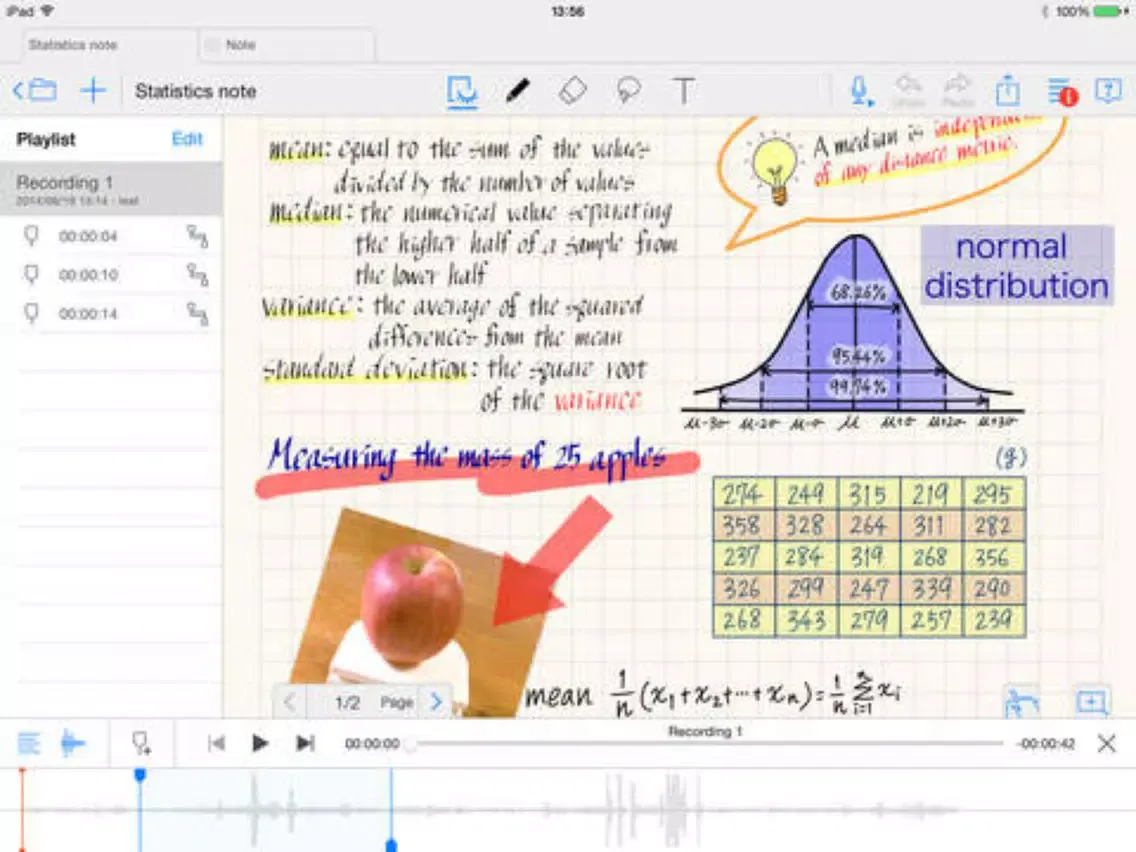 iPad 13:56 100%
Statistics note Note
Statistics note T
Playlist Edit
Recording 1
00:00:04
00:00:10
00:00:14
mean: equal to the sum of the values
divided by the number of values
median: the numerical value separating
the higher half of a sample from
the lower half
variance: the average of the squared
differences from the mean
standard deviation: the square root
of the variance
A median is independent
of any distance metric.
normal
distribution
68.26%
95.44%
99.74%
μ-3σ μ-2σ μ-σ μ μ+σ μ+2σ μ+3σ
Measuring the mass of 25 apples
(g)
274 249 315 219 295
358 328 264 311 282
237 284 319 268 356
326 299 247 339 290
268 343 279 257 239
mean 1/n (x₁+x₂+…+xₙ) = 1/n Σ xᵢ
n
i=1
1/2 Page
Recording 1
00:00:00 -00:00:42